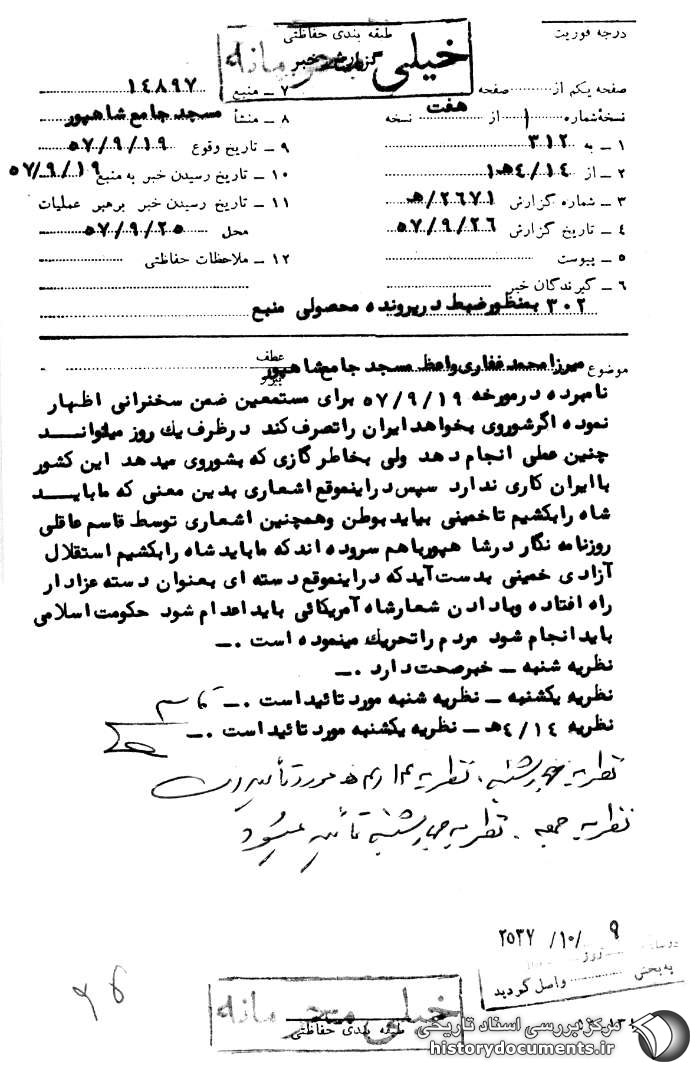 درجه فوریت
طبقه بندی حفاظتی
خیلی محرمانه
گزارش خبر
صفحه یکم از صفحه هفت
۷ ــ منبع ۱۴۸۹۷
نسخهٔ شماره ۱ از نسخه
۸ ــ منشأ مسجد جامع شاهپور
۱ ــ به ۳۱۲
۹ ــ تاریخ وقوع ۵۷/۹/۱۹
۲ ــ از ۴/۱۴ﻫ۱
۱۰ ــ تاریخ رسیدن خبر به منبع ۵۷/۹/۱۹
۳ ــ شماره گزارش ۲۶۷۱/ﻫ
۱۱ ــ تاریخ رسیدن خبر برهبر عملیات
محل ۵۷/۹/۲۵
۴ ــ تاریخ گزارش ۵۷/۹/۲۶
۵ ــ پیوست
۱۲ ــ ملاحظات حفاظتی
۶ ــ گیرندگان خبر
۳۰۲ بمنظور ضبط در پرونده محصولی منبع
موضوع میرزا محمد غفاری واعظ مسجد جامع شاهپور
عطف
پیرو
نامبرده در مورخه ۵۷/۹/۱۹ برای مستمعین ضمن سخنرانی اظهار
نموده اگر شوروی بخواهد ایران را تصرف کند در ظرف یك روز میتوانــد
چنین عملی انجام دهد ولی بخاطر گازی که بشوروی میدهد این کشور
با ایران کاری ندارد سپس در اینموقع اشعاری بدین معنی که ما بایــد
شاه را بکشیم تا خمینی بیاید بوطن وهمچنین اشعاری توسط قاسم عاقلی
روزنامه نگار در شاهپور باهم سروده اند که ما باید شاه را بکشیم استقلال
آزادی خمینی بدست آید که در اینموقع دسته ای بعنوان دسته عزادار
راه افتاده وبا دادن شعار شاه آمریکائی باید اعدام شود حکومت اسلامی
باید انجام شود مردم را تحریك مینموده است .ــ
نظریه شنبه ــ خبر صحت دارد .ــ
نظریه یکشنبه ــ نظریه شنبه مورد تائید است .ــ قاسم
نظریه ۴/۱۴ﻫ ــ نظریه یکشنبه مورد تائید است .ــ
نظریه چهارشنبه . نظریه مورد تأیید است
نظریه جمعه . نظریه چهارشنبه تأیید میشود
۲۵۳۷ /۱۰/ ۹
روز
به بخش
واصل گردید
خیلی محرمانه
طبقه بندی حفاظتی
مرکز بررسی اسناد تاریخی
historydocuments.ir